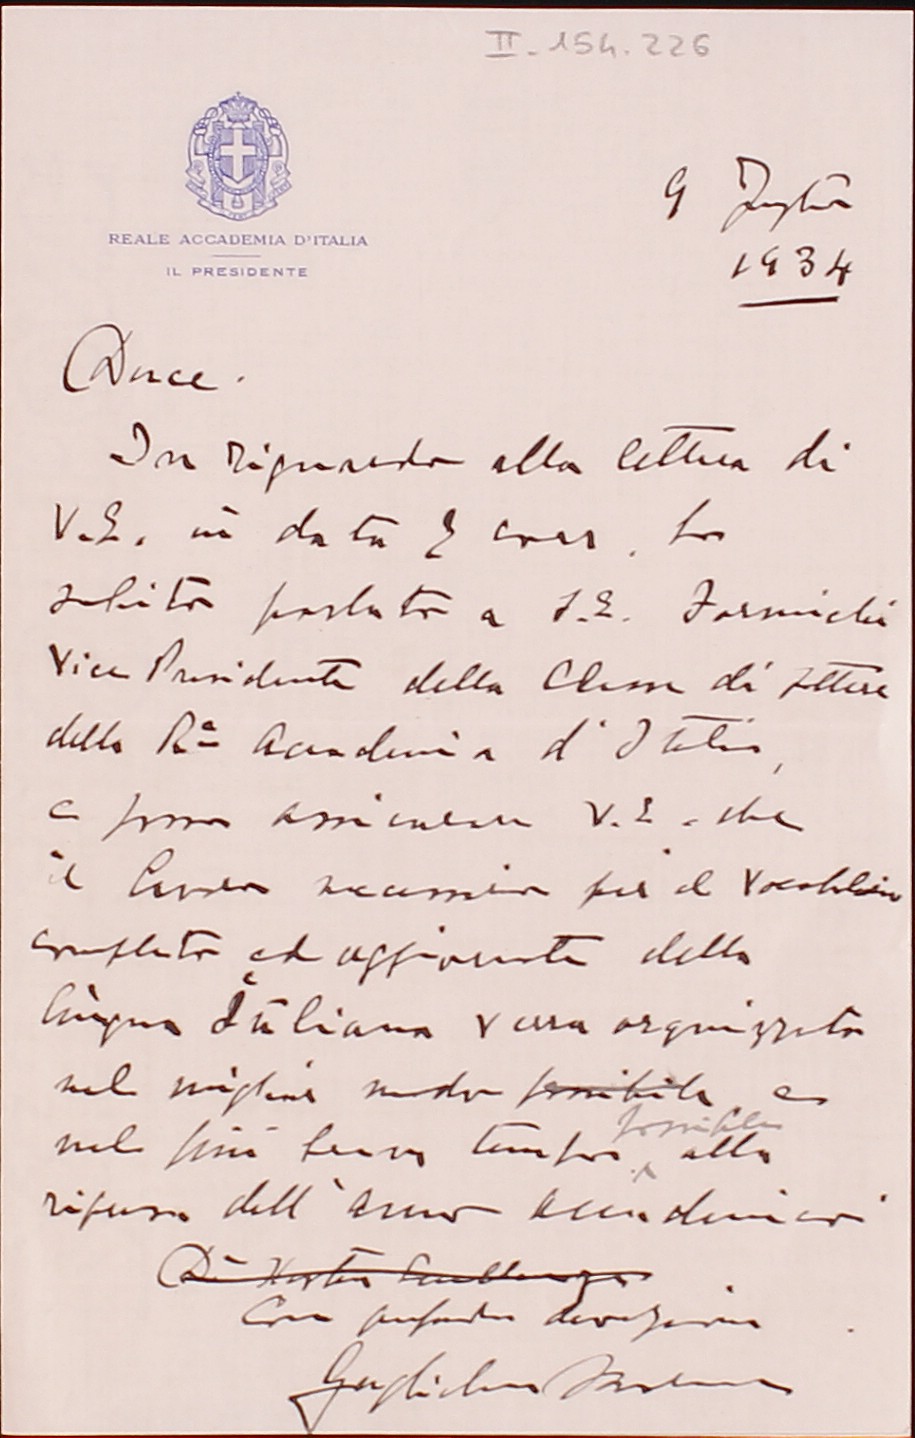 II.154.226
REALE ACCADEMIA D'ITALIA
IL PRESIDENTE
9 Luglio
1934
Duce.
In riguardo alla lettera di
V.E. in data 8 corr. ho
subito parlato a S.E. Formichi
Vice Presidente della Classe di Lettere
della Rª Accademia d'Italia,
e posso assicurare V.E. che
il lavoro necessario per il Vocabolario
completo ed aggiornato della
lingua Italiana verra organizzato
nel miglior modo possibile e
nel più breve tempo possibile alla
ripresa dell'anno accademico
Di Vostra Eccellenza
Con profonda devozione
Guglielmo Marconi